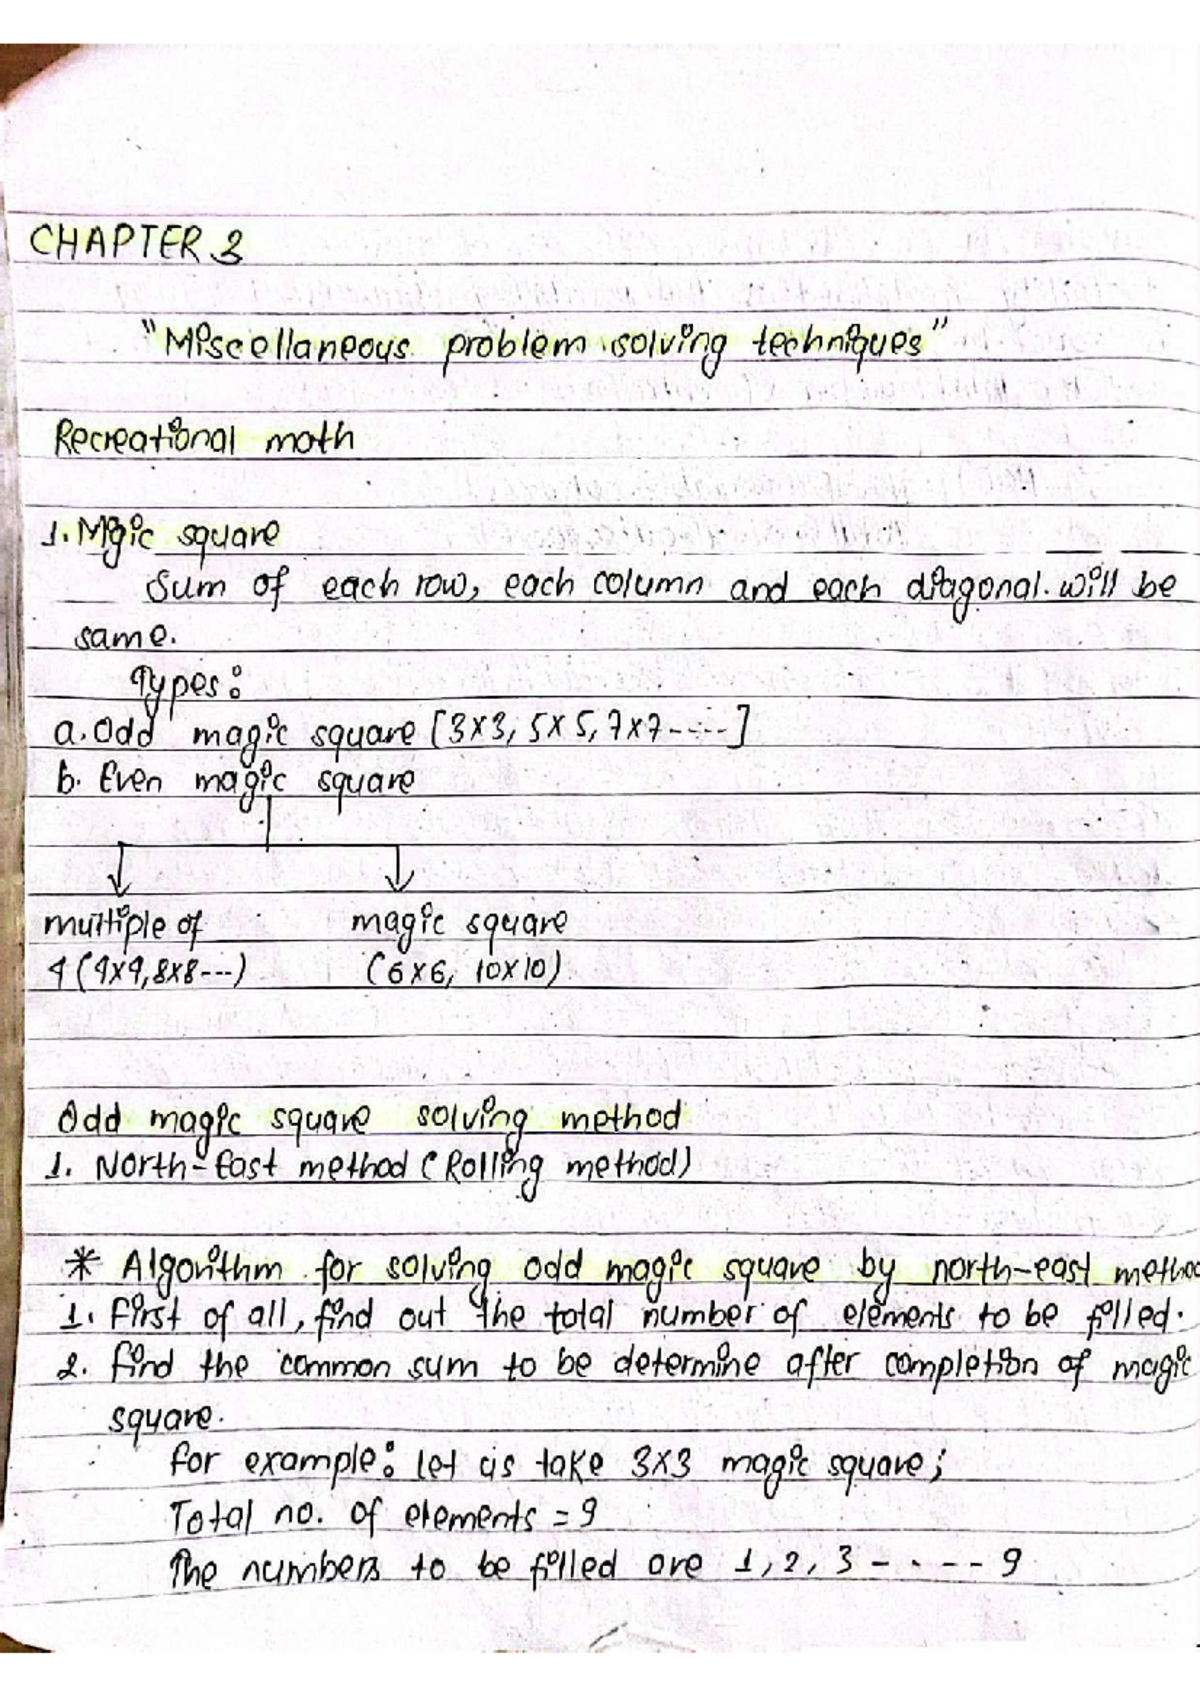 CHAPTER 3
"Miscellaneous problem solving techniques"
Recreational math
1. Mgic square
Sum of each row, each column and each diagonal will be
same.
Types:
a. Odd magic square [3x3, 5x5, 7x7-----]
b. Even magic square
multiple of magic square
4 (4x4, 8x8---) (6x6, 10x10)
Odd magic square solving method
1. North-East method (Rolling method)
* Algorithm for solving odd magic square by north-east method
1. First of all, find out the total number of elements to be filled.
2. find the common sum to be determine after completion of magic
square.
for example: let us take 3x3 magic square;
Total no. of elements = 9
The numbers to be filled are 1, 2, 3 ----- 9